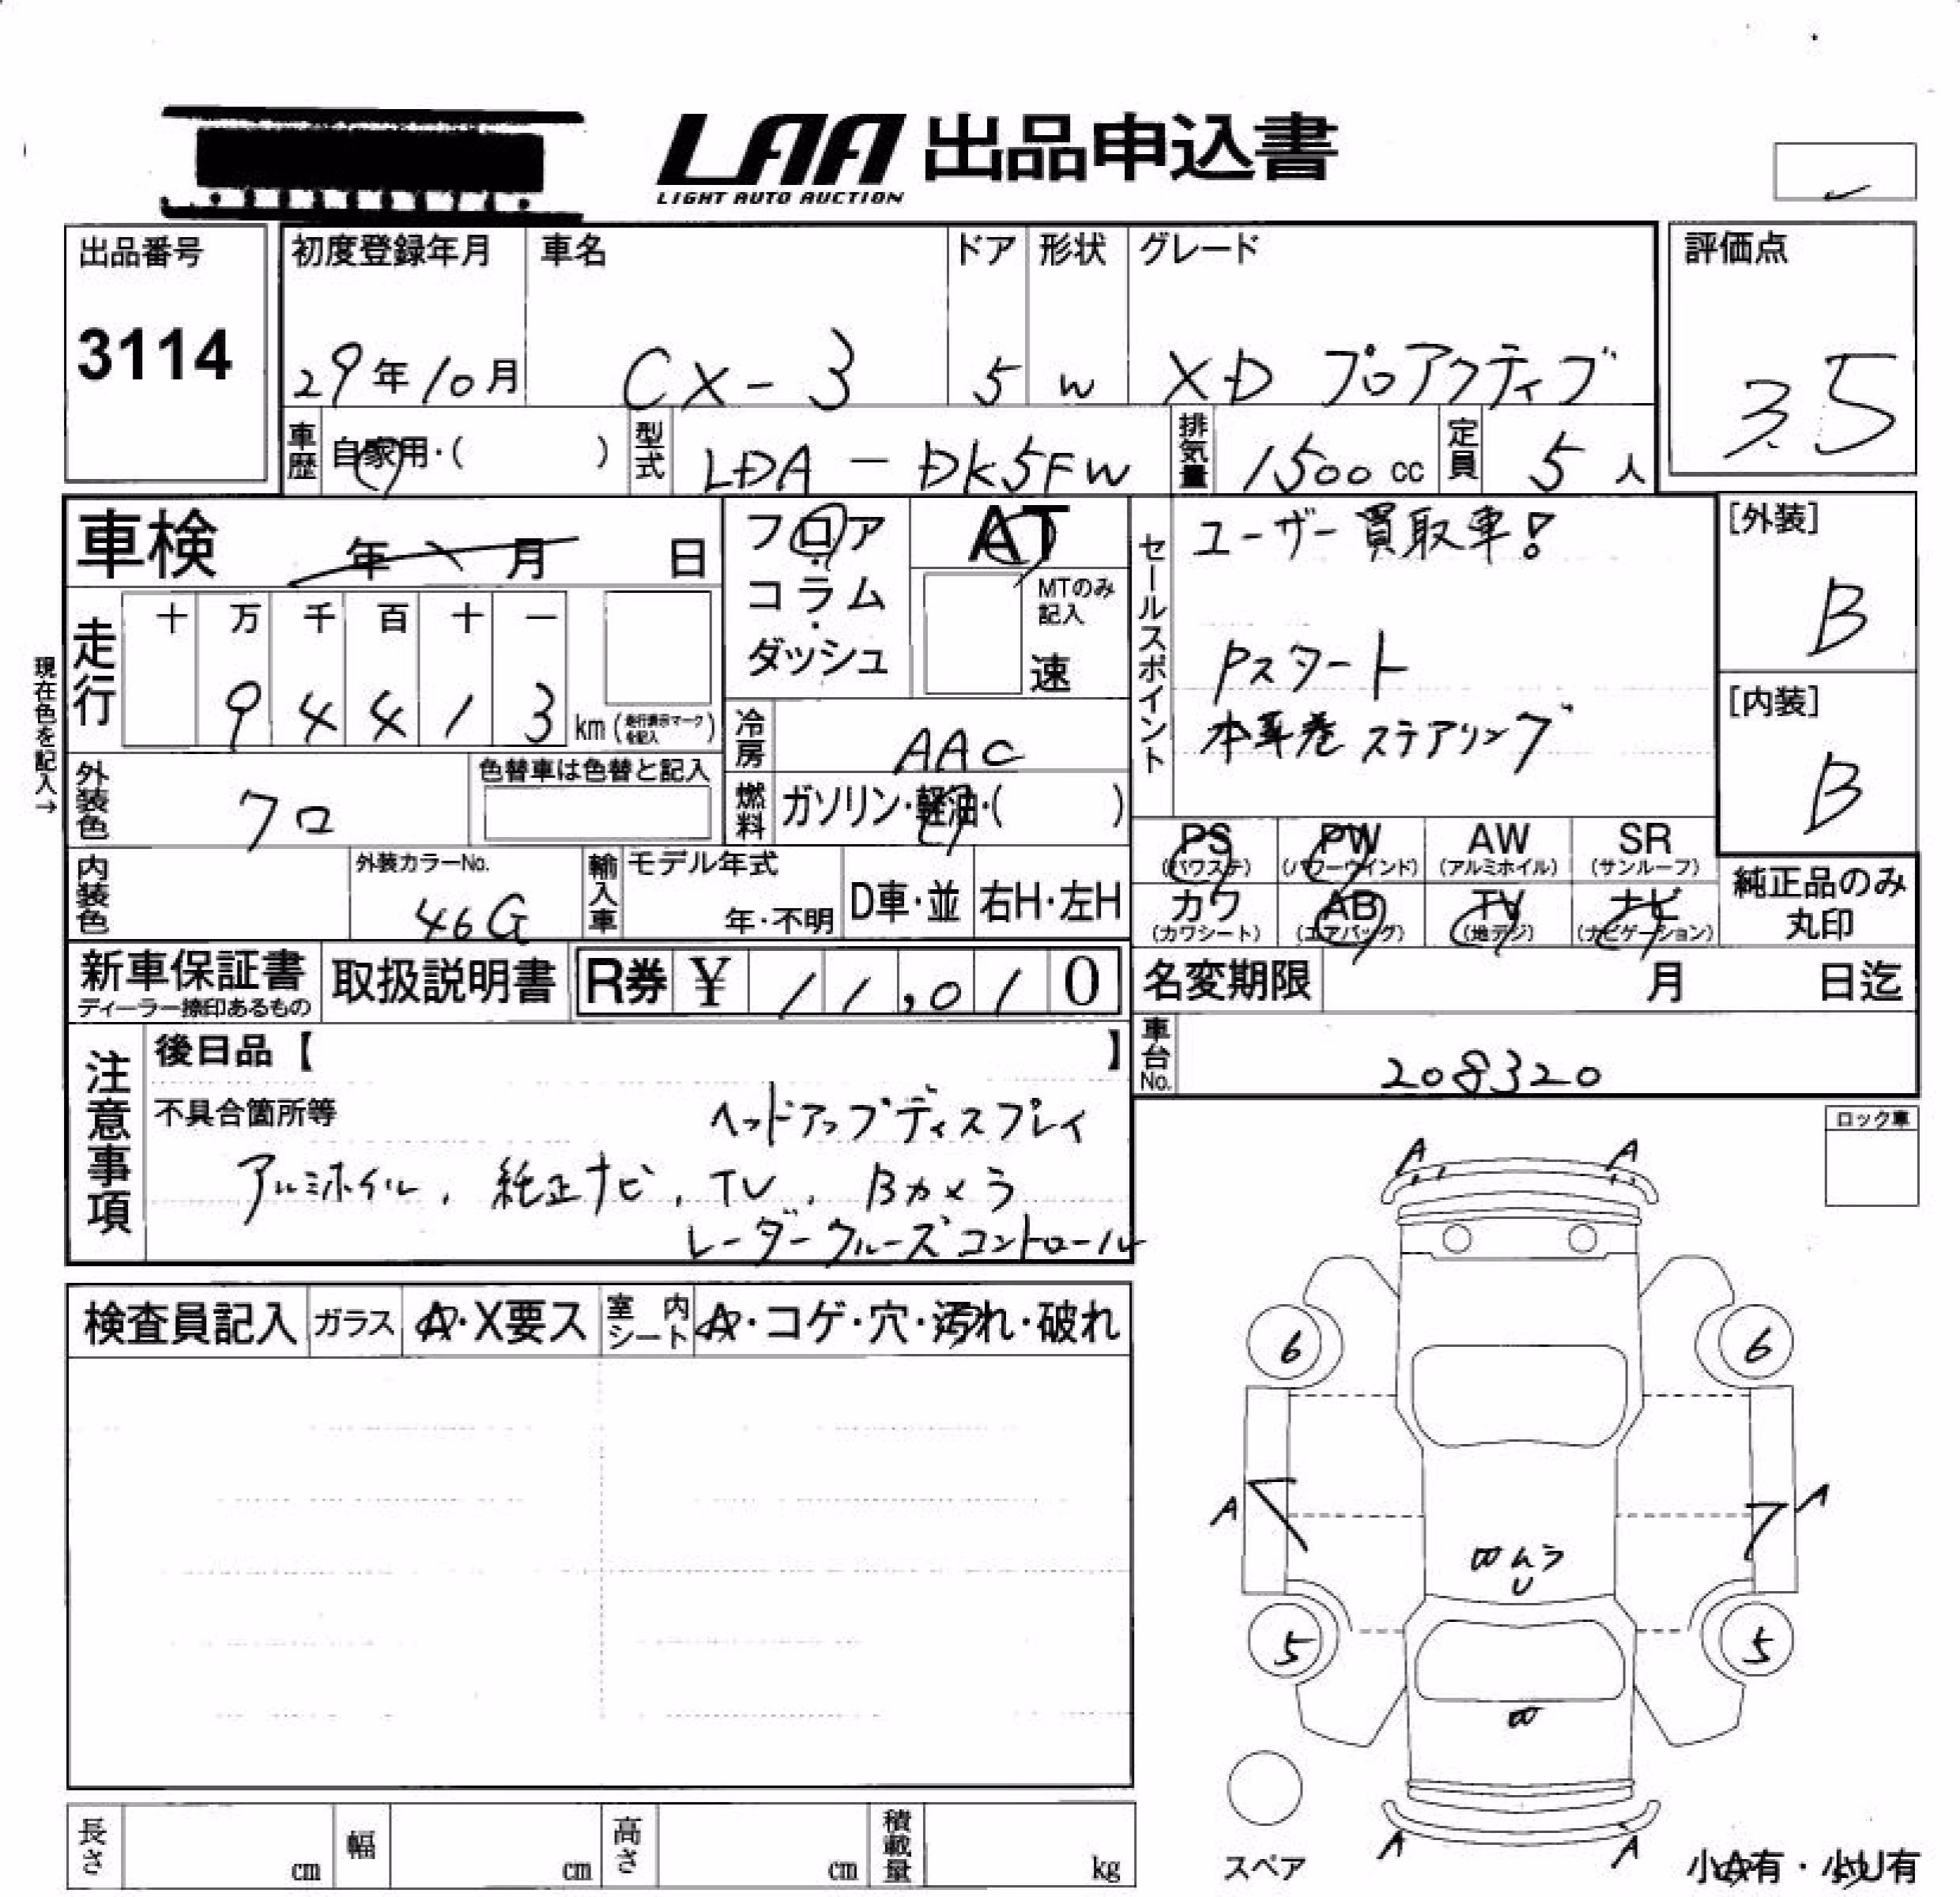 LAA 出品申込書
LIGHT AUTO AUCTION
出品番号
3114
初度登録年月
29年10月
車名
CX-3
ドア
5
形状
W
グレード
XD プロアクティブ
評価点
3.5
車歴
自家用・( )
型式
LDA-DK5FW
排気量
1500cc
定員
5人
車検 年 月 日
現在色を記入→
走行
十 万 千 百 十 一
9 4 4 1 3 km(走行表示マークを記入)
フロア・コラム・ダッシュ
AT
MTのみ記入
速
冷房
AAC
燃料
ガソリン・軽油・( )
外装色
クロ
色替車は色替と記入
内装色
外装カラーNo.
46G
輸入車
モデル年式
年・不明
D車・並
右H・左H
セールスポイント
ユーザー買取車!
Pスタート
本革巻ステアリング
[外装]
B
[内装]
B
PS (パワステ)
PW (パワーウインド)
AW (アルミホイル)
SR (サンルーフ)
カワ (カワシート)
AB (エアバッグ)
TV (地デジ)
ナビ (ナビゲーション)
純正品のみ丸印
新車保証書
ディーラー捺印あるもの
取扱説明書
R券 ¥ 11,010
名変期限 月 日迄
車台No.
208320
注意事項
後日品【 】
不具合箇所等
ヘッドアップディスプレイ
アルミホイル, 純正ナビ, TV, Bカメラ
レーダークルーズコントロール
ロック車
検査員記入
ガラス
A・X要ス
室内シート
A・コゲ・穴・汚れ・破れ
A A
6 6
A A
ムラ
U
5 5
A A
スペア
小A有・小U有
長さ cm
幅 cm
高さ cm
積載量 kg